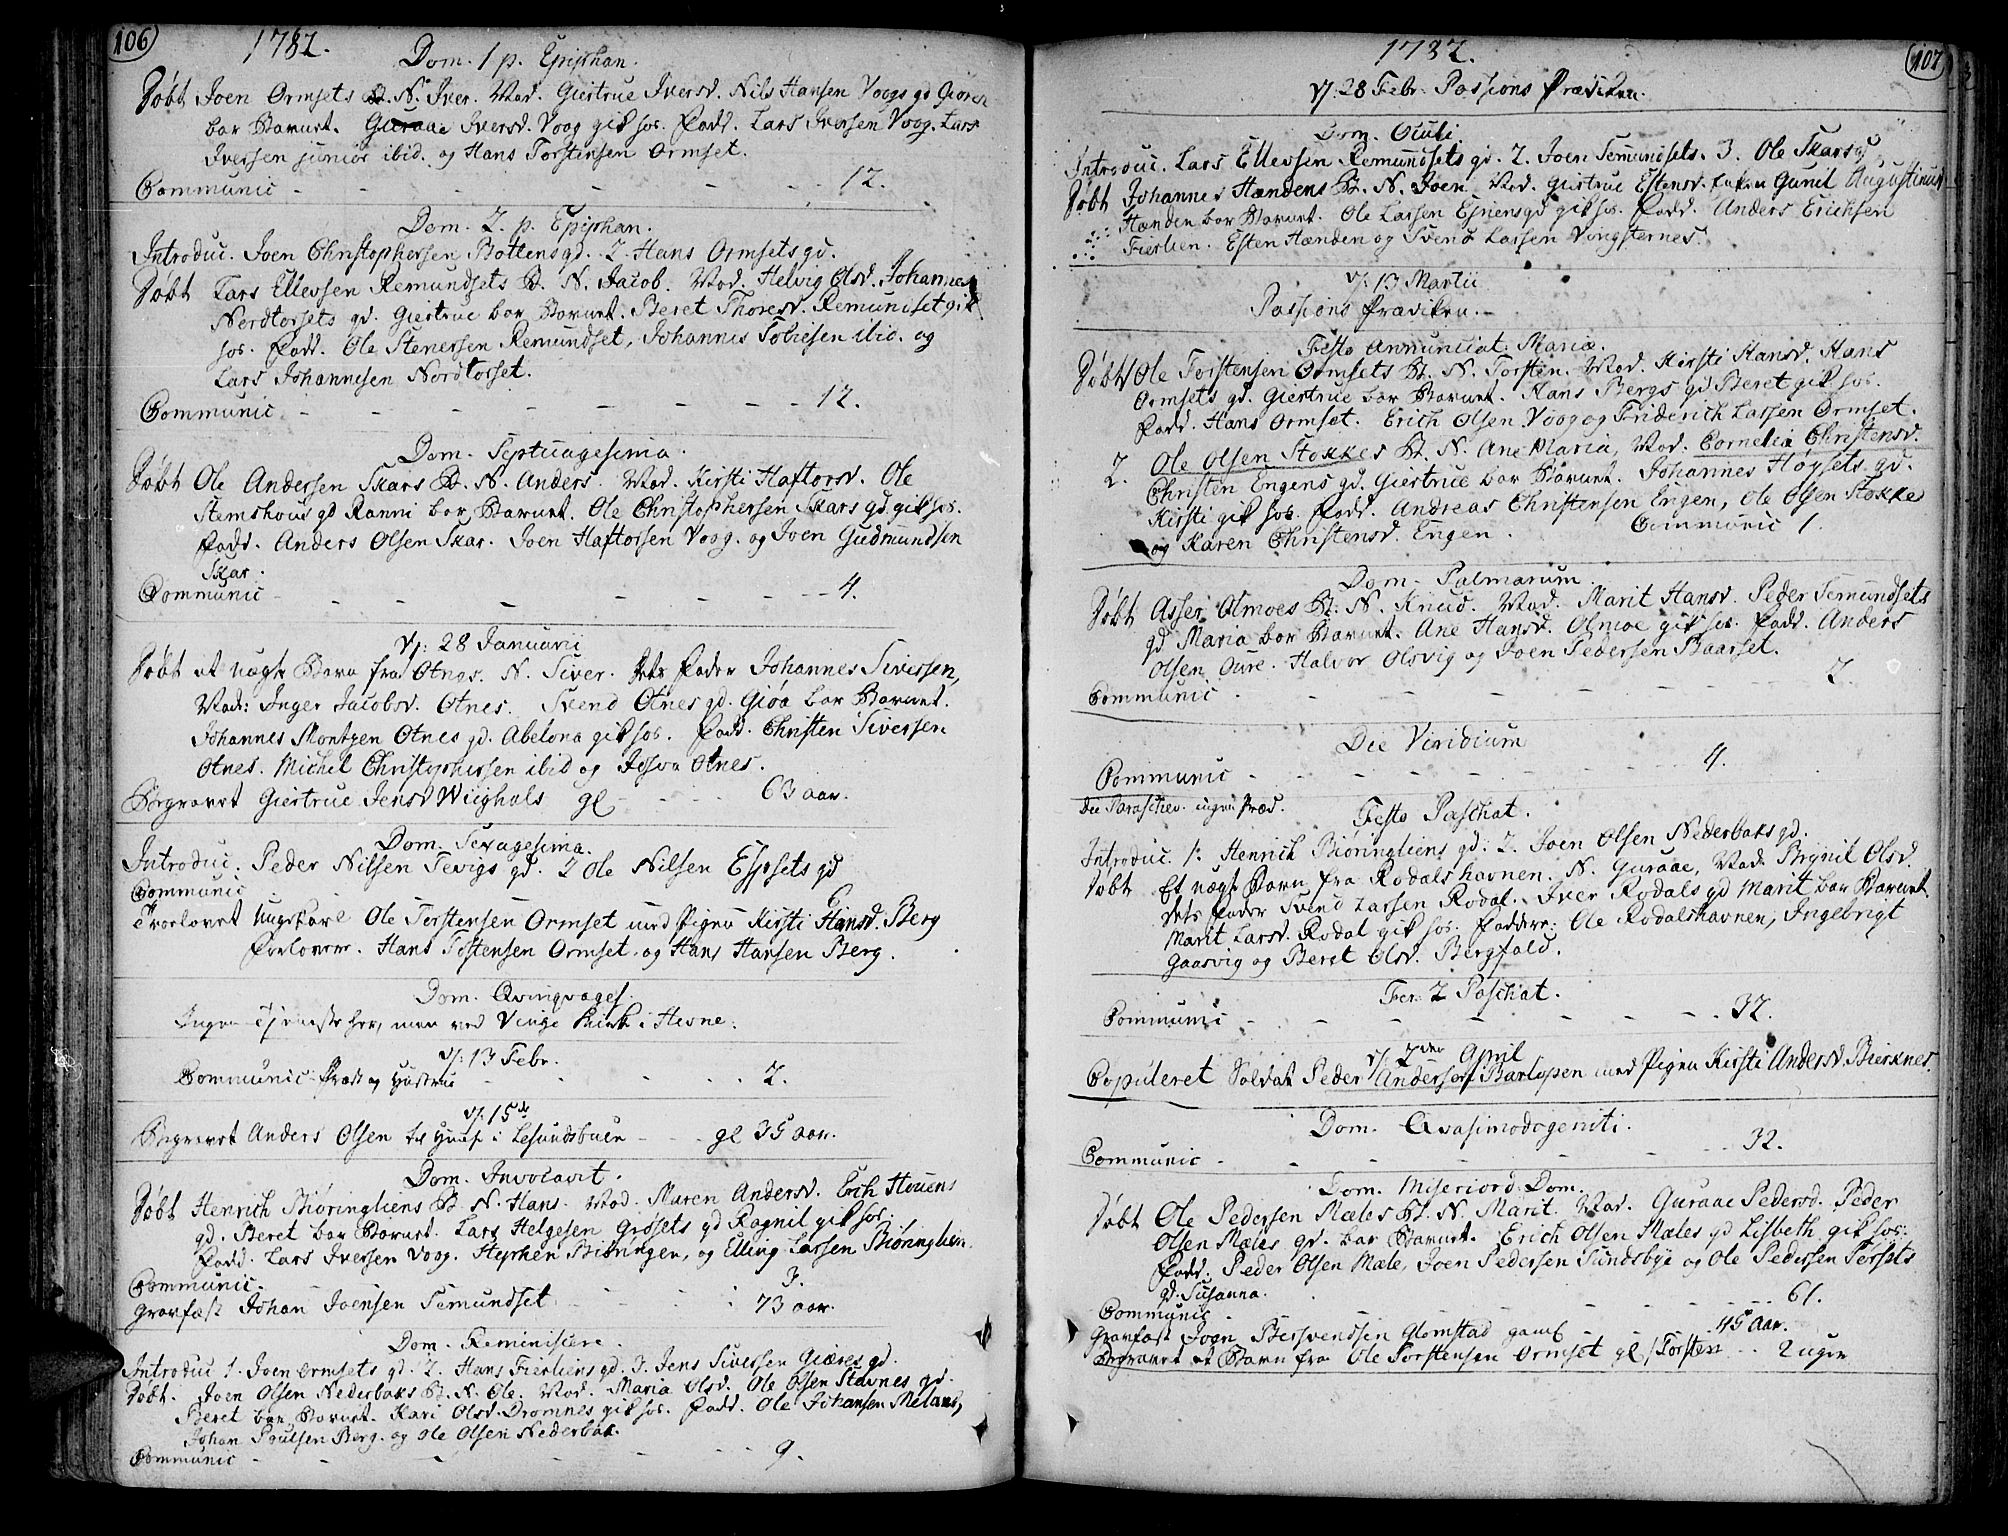 106
1782.
Dom. 1 p. Epiphan.
Døbt Joen Ormsets B. N. Iver. Mod. Giertrue Iversd. Nils Hansen Voogs gd Giøren
bar Barnet. Guraae Iversd. Voog gik hos. Fadd. Lars Iversen Voog. Lars
Iversen junior ibid. og Hans Torstensen Ormset.
Communic - - - - - - 12.
Dom. 2. p. Epiphan.
Introduc. Joen Christophersen Bottens gd. 2. Hans Ormsets gd.
Døbt Lars Ellevsen Remundsets B. N. Jacob. Mod. Helvig Olsd. Johannes
Nordtorsets gd. Giertrue bar Barnet. Beret Thoresd. Remundset gik
hos. Fadd. Ole Stenersen Remundset, Johannes Tobiesen ibid. og
Lars Johannesen Nordtorset.
Communic - - - - - - 12.
Dom. Septuagesima.
Døbt Ole Andersen Skars B. N. Anders. Mod. Kirsti Haftorsd. Ole
Stemshous gd Ranni bar Barnet. Ole Christophersen Skars gd. gik hos.
Fadd. Anders Olsen Skar. Joen Haftorsen Voog. og Joen Gudmundsen
Skar.
Communic - - - - - - 4.
d. 28 Januarii
Døbt et uægte Barn fra Otnes. N. Siver. Dets Fader Johannes Siversen,
Mod: Inger Jacobsd. Otnes. Svend Otnes gd. Giøa bar Barnet.
Johannes Montzen Otnes gd. Abelona gik hos. Fadd. Christen Siversen
Otnes. Michel Christophersen ibid og Josva Otnes.
Begravet Giertrue Jensd Wiighals gl - - - 63 aar.
Dom. Sexagesima.
Introduc. Peder Nilsen Sevigs gd. 2 Ole Nilsen Espsets gd
Communic - 6.
Trolovet Ungekarl Ole Torstensen Ormset med Pigen Kirsti Hansd. Berg
Forlovere. Hans Tostensen Ormset. og Hans Hansen Berg.
Dom. Qvinqvages.
Ingen Tjeneste her, men ved Vinge Kirke i Hevne.
d. 13 Febr.
Communic Præst og Hustrue - - - 2.
d. 15de
Begravet Anders Olsen en Huusm: i Lesundsbuen - - gl 35 aar.
Dom. Invocavit.
Døbt Henrich Biøringliens B. N. Hans. Mod. Maren Andersd. Erich Houens
gd. Beret bar Barnet. Lars Helgesen Grøsets gd Ragnil gik hos.
Fadd. Lars Iversen Voog. Stephen Biøringen, og Elling Larsen Biøringlien.
Communic. - - - - - 3.
Gravfæst Johan Joensen Semundset - - - 73 aar.
Dom. Reminiscere.
Introduc 1. Joen Ormsets gd. 2. Hans Fierliens gd. 3. Jens Siversen Giæres gd.
Døbt. Joen Olsen Nederbaks B. N. Ole. Mod. Maria Olsd. Ole Olsen Stavnes gd.
Beret bar Barnet. Kari Olsd. Dromnes gik hos. Fadd. Ole Johansen Meland,
Johan Poulsen Berg. og Ole Olsen Nederbak.
Communic - - - - - - 9.
107
1782.
d. 28 Febr. Passions Prædiken.
Dom. Oculi
Introduc. Lars Ellevsen Remundsets gd. 2. Joen Semundsets. 3. Ole Skars gd.
Døbt Johannes Hændens B. N. Joen. Mod. Giertrue Estensd. Enken Gunil Augustinusd
Hænden bar Barnet. Ole Larsen Espnens gd gik hos. Fadd. Anders Erichsen
Fierlien. Esten Hænden og Svend Larsen Vingsternes.
d. 13 Martii
Passions Prædiken.
Festo Annunciat. Mariæ.
Døbt Ole Torstensen Ormsets B. N. Torsten. Mod. Kirsti Hansd. Hans
Ormsets gd. Giertrue bar Barnet. Hans Bergs gd Beret gik hos.
Fadd. Hans Ormset. Erich Olsen Voog og Friderich Larsen Ormset.
2. Ole Olsen Stokkes B. N. Ane Maria, Mod. Cornelia Christensd.
Christen Engens gd. Giertrue bar Barnet. Johannes Høysets gd.
Kirsti gik hos. Fadd. Andreas Christensen Engen, Ole Olsen Stokke
og Karen Christensd. Engen. Communic 1.
Dom. Palmarum.
Døbt Asser Olmoes B. N. Knud. Mod. Marit Hansd. Peder Semundsets
gd Maria bar Barnet. Ane Hansd. Olmoe gik hos. Fadd. Anders
Olsen Oure. Halvor Olsvig og Joen Pedersen Baarset.
Communic - - - - - - 2.
Die Viridium
Communic - - - - - - 4.
Die Paraschev. ingen Præd.
Festo Paschat.
Introduc. 1. Henrich Biøringliens gd. 2. Joen Olsen Nederbaks gd.
Døbt Et uægte Barn fra Rodalshavnen. N. Guraae, Mod. Brynil Olsd.
Dets Fader Svend Larsen Rodal. Iver Rodals gd Marit bar Barnet
Marit Larsd. Rodal gik hos. Faddere. Ole Rodalshavnen, Ingebrigt
Gaasvig og Beret Olsd. Bergfald.
Fer. 2 Paschat.
Communic - - - - - - 32.
d. 2den April
Copuleret Soldat Peder Andersen Barlopen med Pigen Kirsti Andersd. Bierknes.
Dom. Qvasimodogeniti.
Communic - - - - - - 32.
Dom. Misericord: Dom.
Døbt Ole Pedersen Mæles B. N. Marit. Mod. Guraae Pedersd. Peder
Olsen Mæles gd. bar Barnet. Erich Olsen Mæles gd Lisbeth gik hos.
Fadd. Peder Olsen Mæle, Joen Pedersen Sundsbye og Ole Pedersen Sørsets
gd. Susanna.
Communic - - - - - - 61.
Gravfæst Joen Bersvendsen Glomstad gaml - - 45 Aar.
Begravet et Barn fra Ole Torstensen Ormset gl / Torsten - - 2 uger